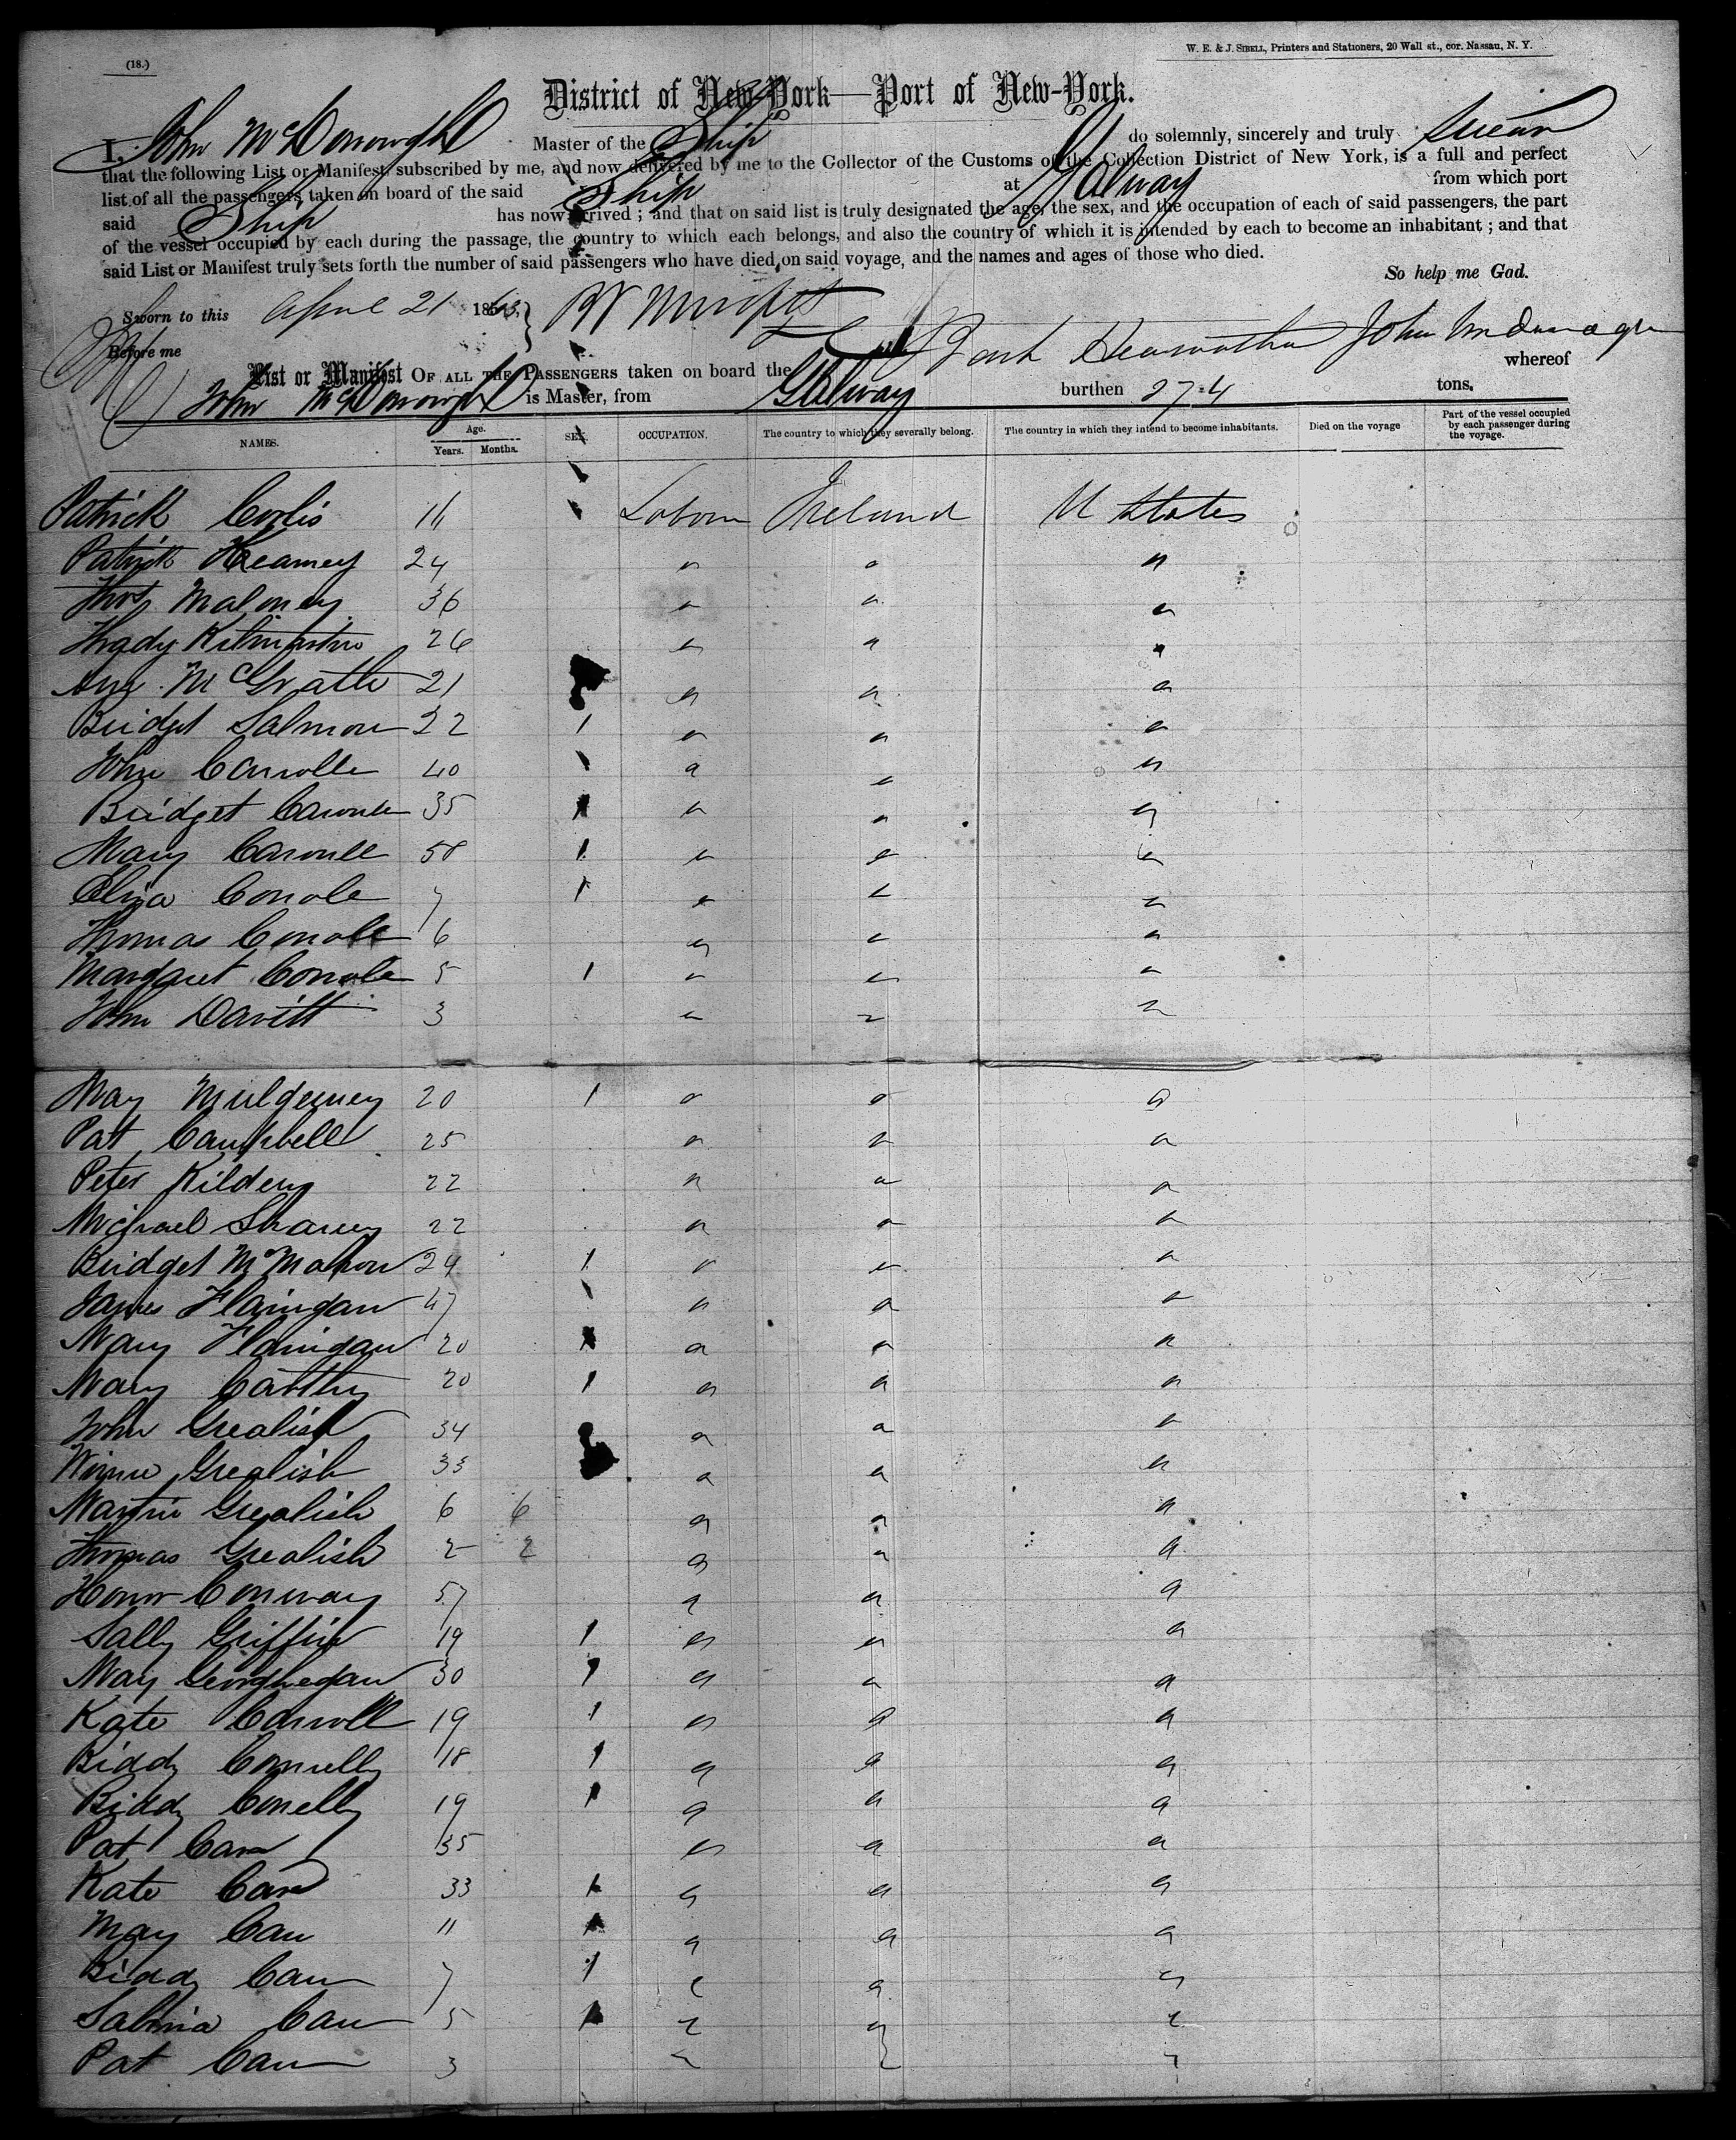 (18.)
W. E. & J. SIBELL, Printers and Stationers, 20 Wall st., cor. Nassau, N. Y.
District of New-York—Port of New-York.
I, John McDonough Master of the Ship do solemnly, sincerely and truly swear
that the following List or Manifest, subscribed by me, and now delivered by me to the Collector of the Customs of the Collection District of New York, is a full and perfect
list of all the passengers taken on board of the said Ship at Galway from which port
said Ship has now arrived ; and that on said list is truly designated the age, the sex, and the occupation of each of said passengers, the part
of the vessel occupied by each during the passage, the country to which each belongs, and also the country of which it is intended by each to become an inhabitant ; and that
said List or Manifest truly sets forth the number of said passengers who have died on said voyage, and the names and ages of those who died.
So help me God.
Sworn to this April 21 1863,
Before me
List or Manifest OF ALL THE PASSENGERS taken on board the Bark Hiawatha whereof
John McDonough is Master, from Galway burthen 274 tons.
NAMES. Age. Years. Months. SEX. OCCUPATION. The country to which they severally belong. The country in which they intend to become inhabitants. Died on the voyage Part of the vessel occupied by each passenger during the voyage.
Patrick Corlis 16 Labour Ireland U States
Patrick Keamey 24 " " "
Thos Maloney 36 " " "
Thady 26 " " "
McGrath 21 " " "
Bridget Salmon 22 1 " " "
John Carrolle 40 " " "
Bridget Carroll 35 1 " " "
Mary Carroll 58 1 " " "
Eliza Conole 7 1 " " "
Thomas Conole 6 " " "
Margaret Conole 5 1 " " "
John Davitt 3 " " "
May Muldemey 20 1 " " "
Pat Campbell 25 " " "
Peter Kildery 22 " " "
Michael 22 " " "
Bridget McMahon 24 1 " " "
James Flanigan 47 " " "
Mary Flanigan 20 1 " " "
Mary Carthy 20 1 " " "
John Grealish 34 " " "
Winnie Grealish 33 " " "
Martin Grealish 6 6 " " "
Thomas Grealish 2 2 " " "
Honor Conway 57 " " "
Sally Griffin 19 1 " " "
May Georghegan 30 1 " " "
Kate Carroll 19 1 " " "
Biddy Connelly 18 1 " " "
Biddy Conelly 19 1 " " "
Pat Carr 35 " " "
Kate Carr 33 1 " " "
May Carr 11 1 " " "
Biddy Carr 7 1 " " "
Sabina Carr 5 1 " " "
Pat Carr 3 " " "